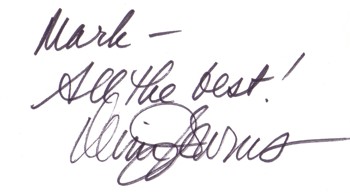 Mark –
All the best!